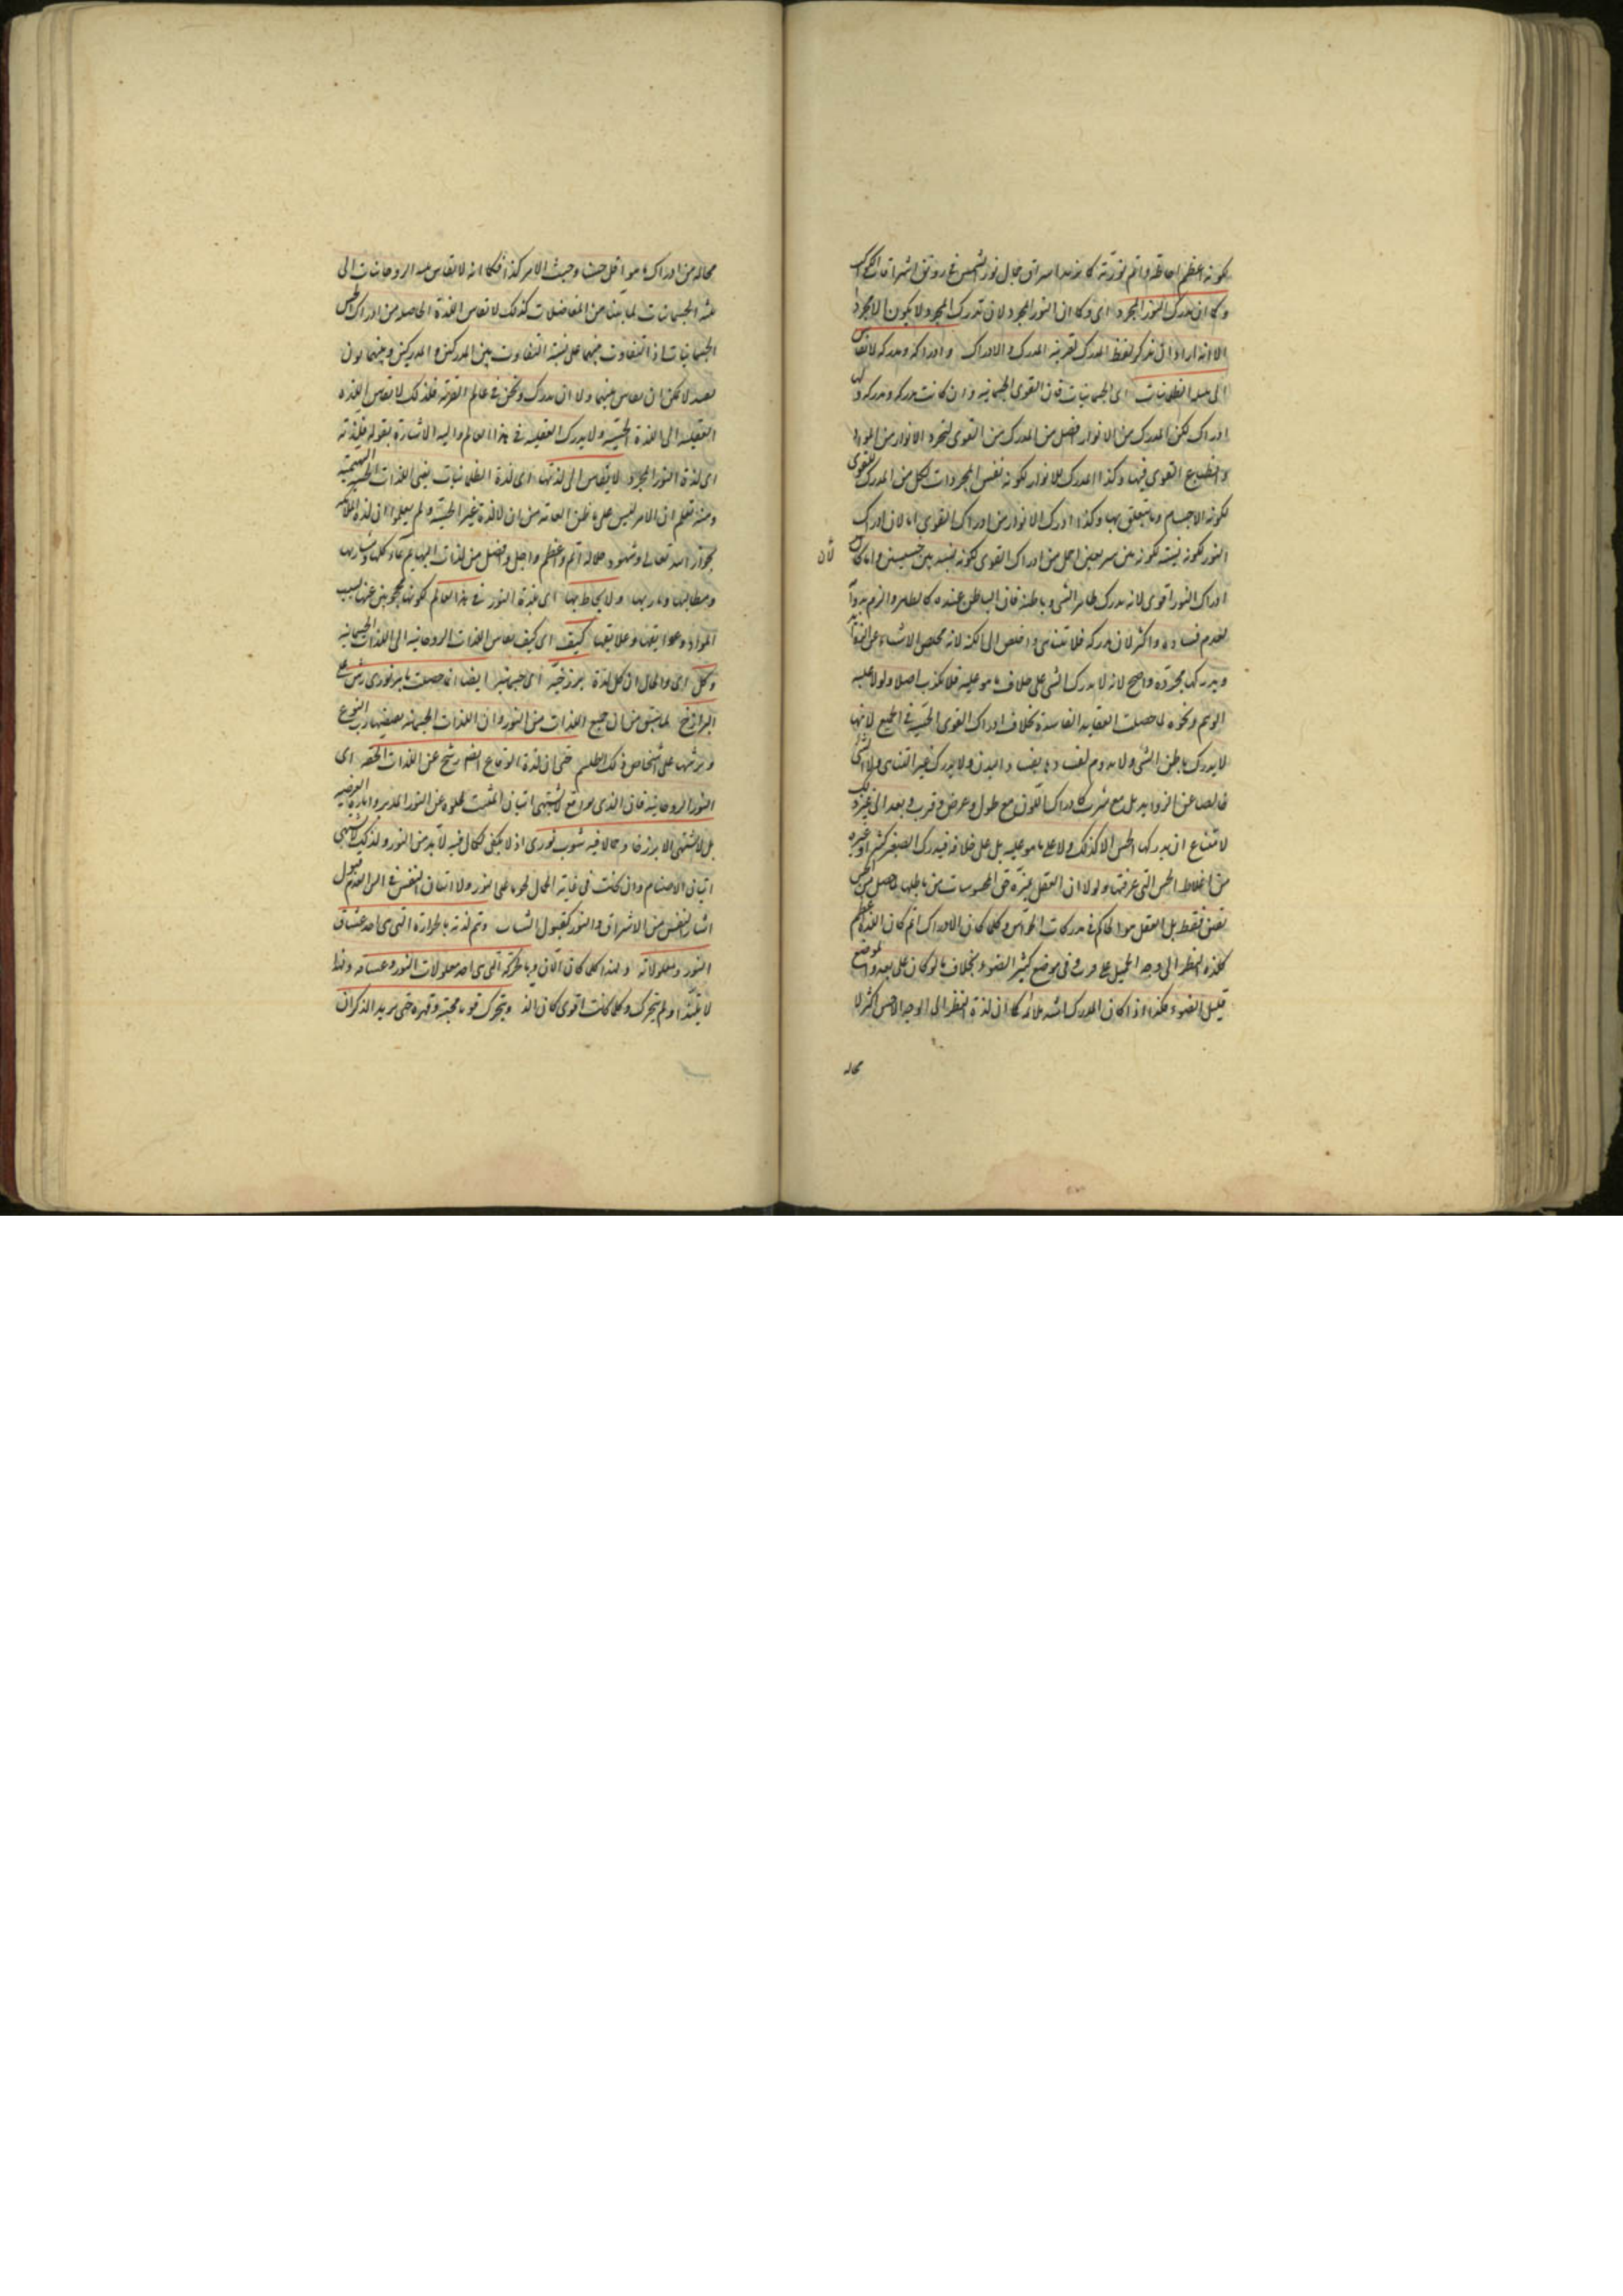 لكونه اعظم احاطة واتم نورية كما يزيد اشراق جمال نور الشمس على رونق اشراقات الكواكب
وكما ان مدرك النور المجرد اى وكما ان النور المجرد لان مدرك المجرد لا يكون الا مجردا
الا انه اراد ان يذكر لفظ المدرك لقرينة المدرك والادراك وادراكه ومدركه لا يقاس
الى مثله الظلمانيات اى الجسمانيات فان القوى الجسمانية وان كانت مدركة ومدركة ولها
ادراك لكن المدرك من الانوار افضل من المدرك من القوى لتجرد الانوار من المواد
وانطباع القوى فيها وكذا المدرك للانوار لكونه نفس المجردات اكمل من المدرك للقوى
لكونه الاجسام وما يتعلق بها وكذا ادراك الانوار من ادراك القوى اما لان ادراك
النور لكونه نسبة لكونه بين شريفين اجل من ادراك القوى لكونه نسبة بين خسيسين واما لان
لأن
ادراك النور اقوى لانه يدرك ظاهر الشى وباطنه فان الباطن عنده كالظاهر والزم
لعدم فساده واكثر لان مدركه فلا يتناهى واخلص الى الكنه لانه يخلص الاشياء عن
ويدركها مجردة واصح لانه لا يدرك الشى على خلاف ما هو عليه فلا يكذب اصلا ولولا غلبة
الوهم ونحوه لما حصلت العقايد الفاسدة بخلاف ادراك القوى الحسية فى الجميع لانها
لا يدرك باطن الشى ولا يدوم لفساده بفساد البدن ولا يدرك غير المتناهى ولا الشى
خالصا عن الزوايد بل مع شركة كادراك اللون مع طول وعرض وقرب وبعد الى غير ذلك
لامتناع ان يدركها الحس الا كذلك ولا على ما هو عليه بل على خلافه فيدرك الصغير كبيرا وغيره
من اغلاط الحس التى عرفتها ولولا ان العقل يميز حق المحسوسات من باطلها لحصل من الحس
تعين فقط بل العقل هو الحاكم فى مدركات الحواس وكلما كان الادراك اتم كان اللذة اعظم
كلذة النظر الى وجه الجميل على قرب وفى موضع كثير الضوء بخلاف ما لو كان على بعد او موضع
قليل الضوء هكذا واذا كان المدرك اشد ملائمة كما ان لذة النظر الى الوجه الاحسن اكثر لا
محاله
محاله من ادراك ما هو اقل حسنا وحيث الامر كذا فكما انه لا يقاس الروحانيات الى
مثله الجسمانيات لما بينا من المفاضلات كذلك لا يقاس اللذة الحاصله من ادراك الحس
الجسمانيات اذ التفاوت بينهما على نسبة التفاوت بين المدركين والمدركين وبينهما بون
بعيد لا يمكن ان يقاس بينهما ولا ان يدرك ونحن فى عالم الغربة فلذلك لا يقاس اللذة
العقلية الى اللذة الحسية ولا يدرك العقلية فى هذا العالم واليه الاشارة بقوله فلذته
اى لذة النور المجرد لا يقاس الى لذتها اى لذة الظلمانيات يعنى اللذات الحسية البهيمية
ومنه تعلم ان الامر ليس على ما ظن العامة من ان لا لذة غير الحسية ولم يعلموا ان لذة الملائكة
بجوار الله تعالى وشهود جلاله اتم واعظم واجل وافضل من لذات البهايم بماكلها ومشاربها
ومطالبها ومآربها ولا يحاط بها اى بلذة النور فى هذا العالم لكونها محجوبين عنها بسبب
المواد وعوايقها وعلايقها كيف اى كيف يقاس اللذات الروحانية الى اللذات الجسمانية
وكل اى والحال ان كل لذة برزخية اى جسمية ايضا انما حصلت بامر نورى رش على
البرازخ لما سبق من ان جميع اللذات من النور وان اللذات الجسمانية يفيضها رب النوع
ويرشها على اشخاص ذلك الطلسم حتى ان لذة الوقاع ايضا رشح عن اللذات الحقة اى
النور الروحانية فان الذى يواقع لا يشتهى اتيان الميت لخلوه عن النور المدبر واثاره العرضية
بل لا يشتهى الا برزخا وجمالا فيه شوب نورى اذ لا يكفى الجمال فيه لا بد من النور ولذلك لا يشتهى
اتيان الاصنام وان كانت فى غاية الجمال لخلوها عن النور ولا اتيان النفس فى السن لعدم قبول
اثار النفس من الاشراق والنور كقبول الشباب وتتم لذته بالحرارة التى هى احد عشاق
النور ومعلولاته ولهذا كلما كان الان وبالحركة التى هى احد معلولات النور وعشاقه ولهذا
لا يلتذ اذا لم يتحرك وكلما كانت اقوى كان الذ ويتحرك قوتا محبته وقهره حتى يريد الذكر ان